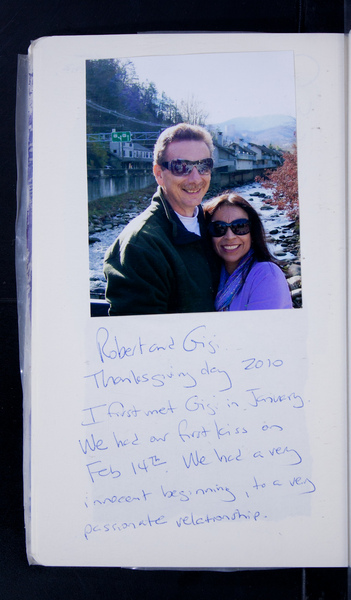 Robert and Gigi...
Thanksgiving day 2010
I first met Gigi in January.
We had our first kiss on
Feb 14th. We had a very
innocent beginning, to a very
passionate relationship.